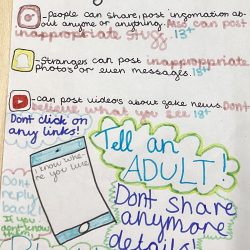 -people can share, post information ab-
out anyone or anything. Also can post
inappropriate stuff. 13+
-Strangers can post inappropriate
photos or even messages. 13+
-can post videos about fake news. Dont
believe what you see 13+
Dont click on
any links!
Tell an
ADULT!
I know whe-
re you live
Dont
reply
back!
If you
don't know
Dont share
anymore
details!